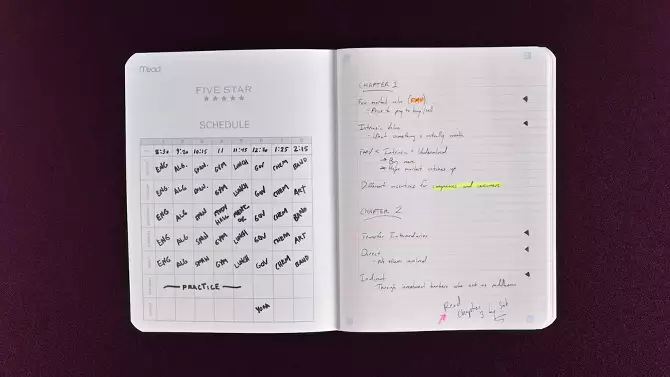 Mead
FIVE STAR
★★★★★
SCHEDULE
8:30 9:20 10:15 11 11:45 12:30 1:25 2:15
ENG ALG. SPAN. GYM LUNCH GOV CHEM BAND
ENG ALG SPAN GYM LUNCH GOV CHEM ART
ENG ALG SPAN STUDY HALL GOV CHEM BAND
ENG ALG SPAN GYM LUNCH GOV CHEM ART
ENG ALG SPAN GYM LUNCH GOV CHEM BAND
PRACTICE
YOGA
CHAPTER 1
Fair market value (FMV)
- Price to pay to buy/sell
Intrinsic Value
- What something is actually worth
FMV < Intrinsic = Undervalued
→ Buy more
market catches up
Different for companies and consumers
CHAPTER 2
Transfer Intermediaries
Direct
- No involved
Indirect
Through investment bankers who act as middlemen
Read
Chapter
3 by